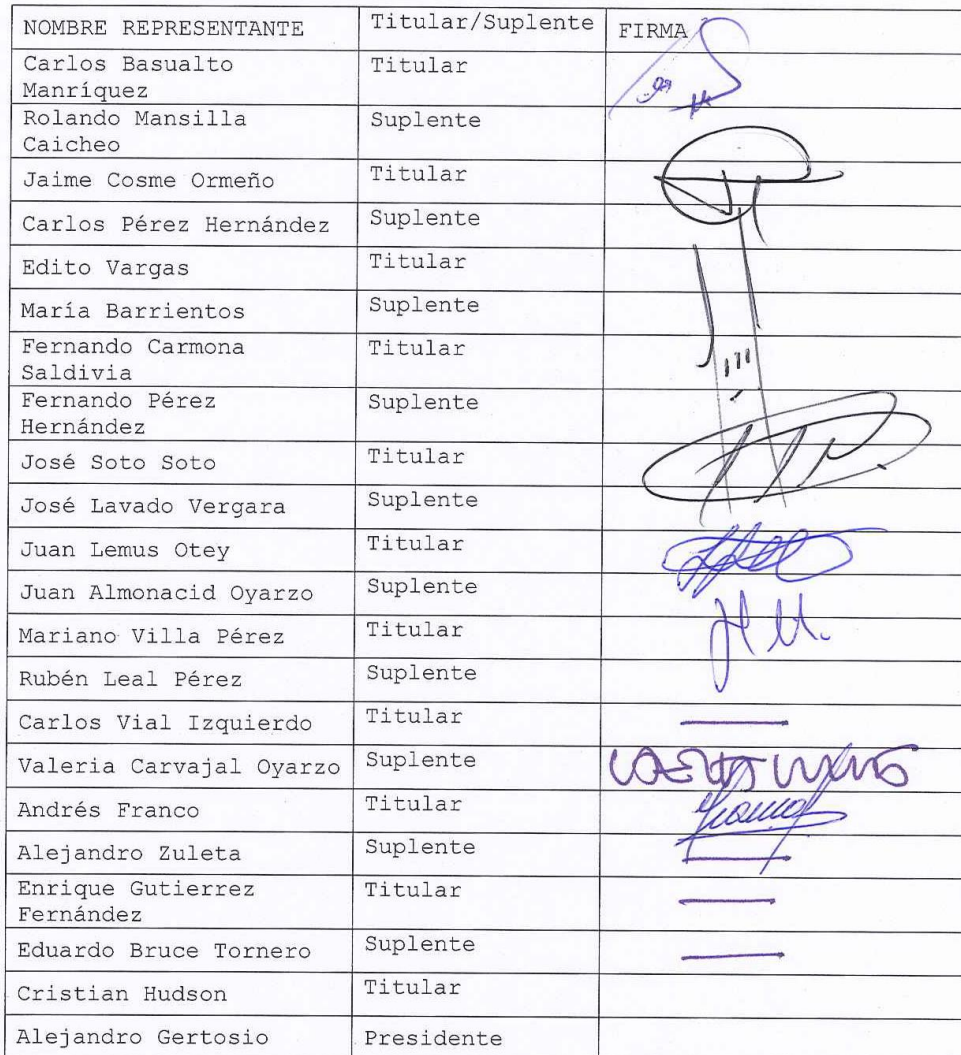 NOMBRE REPRESENTANTE Titular/Suplente FIRMA
Carlos Basualto Titular
Manríquez
Rolando Mansilla Suplente
Caicheo
Jaime Cosme Ormeño Titular
Carlos Pérez Hernández Suplente
Edito Vargas Titular
María Barrientos Suplente
Fernando Carmona Titular
Saldivia
Fernando Pérez Suplente
Hernández
José Soto Soto Titular
José Lavado Vergara Suplente
Juan Lemus Otey Titular
Juan Almonacid Oyarzo Suplente
Mariano Villa Pérez Titular
Rubén Leal Pérez Suplente
Carlos Vial Izquierdo Titular
Valeria Carvajal Oyarzo Suplente
Andrés Franco Titular
Alejandro Zuleta Suplente
Enrique Gutierrez Titular
Fernández
Eduardo Bruce Tornero Suplente
Cristian Hudson Titular
Alejandro Gertosio Presidente